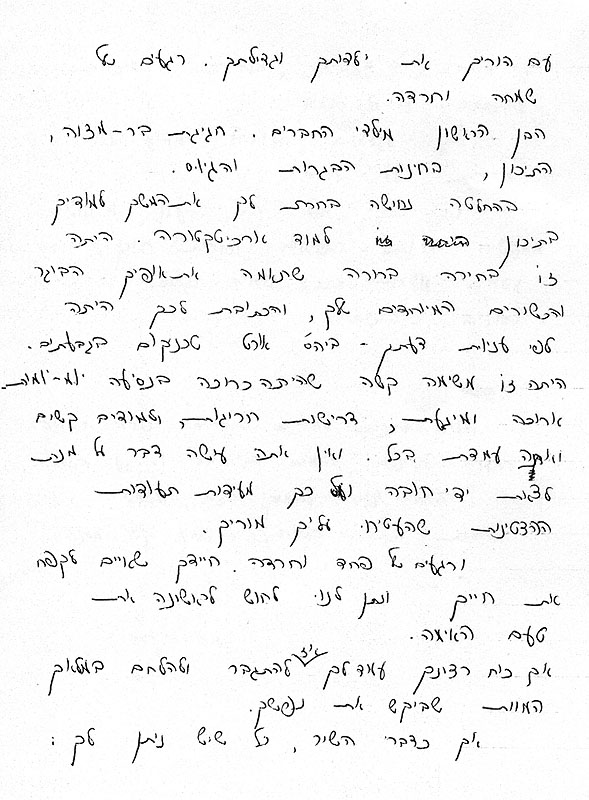 עם הוריך את ילדותך וגדילתך. רגעים של
שמחה וחרדה.
הבן הראשון מילדי החברים. חגיגת בר-מצוה,
התיכון, בחינות הבגרות והגיוס.
בהחלטה נחושה בחרת לך את המשך למודיך
בתיכון למוד ארכיטקטורה. היתה
זו בחירה ברורה שתאמה את אופיך הבוגר
והכשורים המיוחדים שלך, והכתובת לכך היתה
לפי עניות דעתך - ביה"ס אורט טכניקום בגבעתים.
היתה זו משימה קשה שהיתה כרוכה בנסיעה יומ-יומית
ארוכה ומיגעת, דרישות חריגות, ולמודים קשים
ואתה עמדת בכל. ואין אתה עושה דבר על מנת
לצאת ידי חובה ועל כך מעידות תעודות
ההצטינות שהעטירו עליך מוריך.
ורגעים של פחד וחרדה. חיידק שאיים לקפח
את חייך ונתן לנו לחוש לראשונה את
טעם האימה.
אך כוח רצינך עמד לך אז להתגבר ולהלחם במלאך
המוות שביקש את נפשך.
אך כדברי השיר, כל שיש ניתן לך: